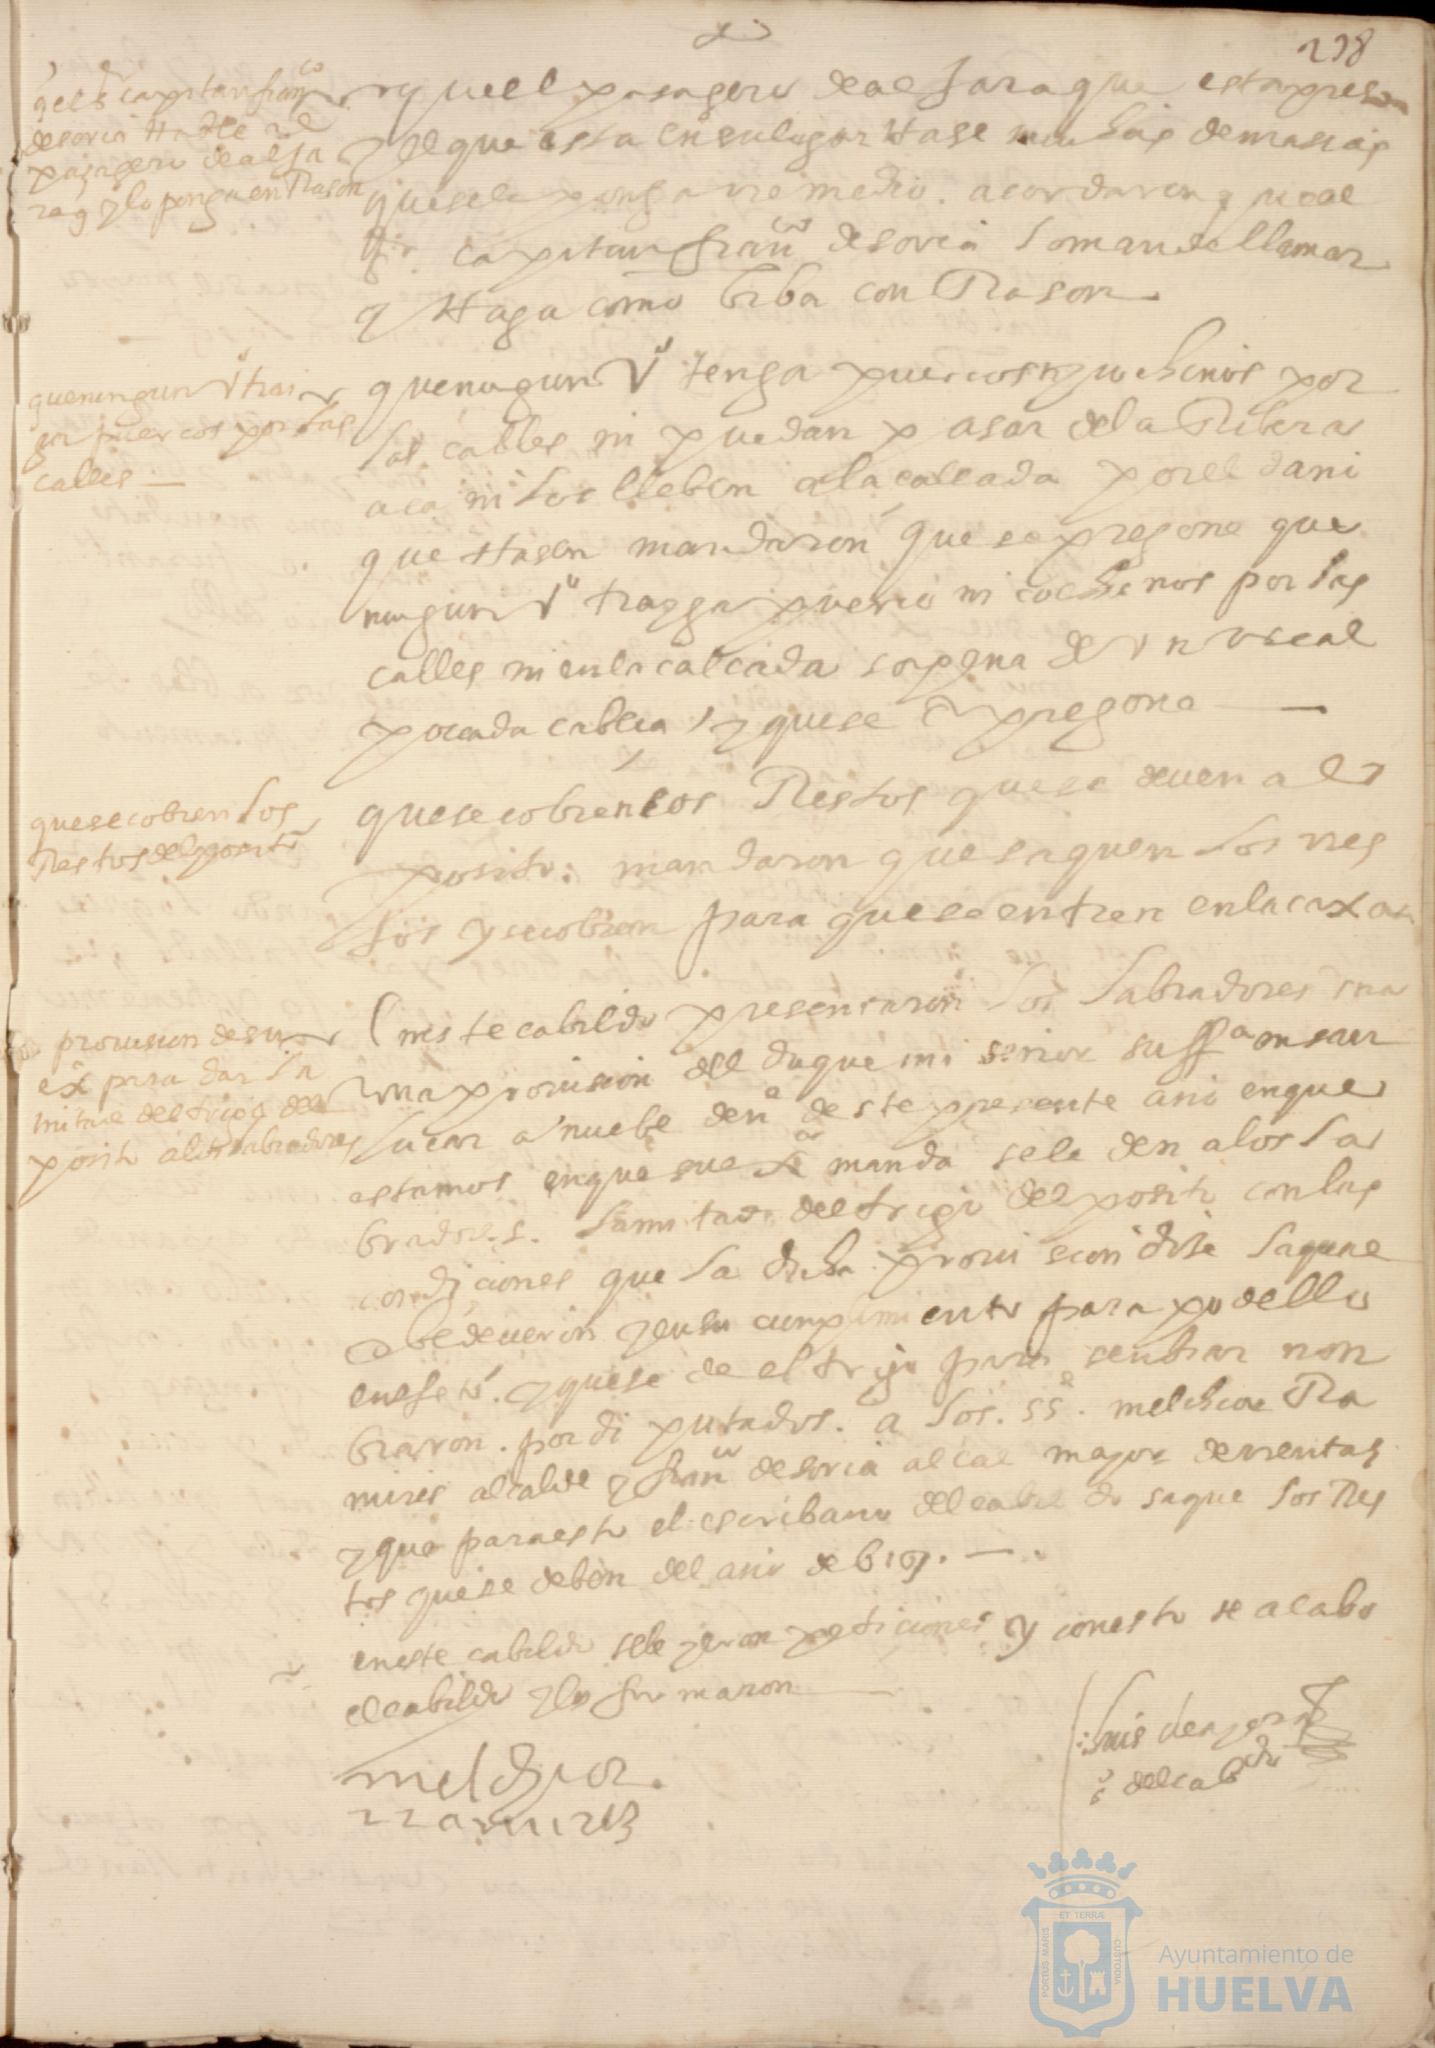 238
q el sr capitan franco
de soria Hable al
pasagero de alja
raq y lo ponga en Rason
y que el pasagero de alJaraque esta preso
y el que esta en su lugar Hase muchas demasias
que se le ponga rremedio. acordaron que al
sr. capitan franco de soria lo mande llamar
y Haga como biba con Rason
que ningun vo trai
ga puercos por las
calles —
que ningun vo tenga puercos ni cochinos por
las calles ni puedan pasar de la Ribera
aca ni los lleben a la calsada por el daño
que Hasen mandaron que se pregone que
ningun vo trayga puerco ni cochinos por las
calles ni en la calcada so pena de un Real
por cada cabeca y que se pregone —
que se cobren los
Restos del posito
que se cobren los Restos que se deven al
posito: mandaron que saquen los rres
tos y se cobren para que se entren en la caxa
provision de su
exa para dar la
mitad del trigo del
posito a los labradores
En este cabildo presentaron los labradores una
una provision del duque mi señor su ffa en san
lucar a nuebe de no de ste presente año en que
estamos en que su exa manda se le den a los la
bradores. la mitad del trigo del posito con las
condiciones que la dicha provision dise la qual
obedecieron y en su cumplimiento para podello
en efeto. y que se de el trigo para senbrar non
braron. por diputados. a los. ss. melchior Ra
mires alcalde y franco de soria alcal mayor de rrentas
y que para esto el escribano del cabildo saque los Res
tos que se deben del año de 610. —
en este cabildo se leyeron peticiones y con esto se acabo
el cabildo y lo firmaron —
melchior
rramires
Luis de
so del cabdo
PORTUS MARIS
ET TERRÆ
CUSTODIA
Ayuntamiento de
HUELVA